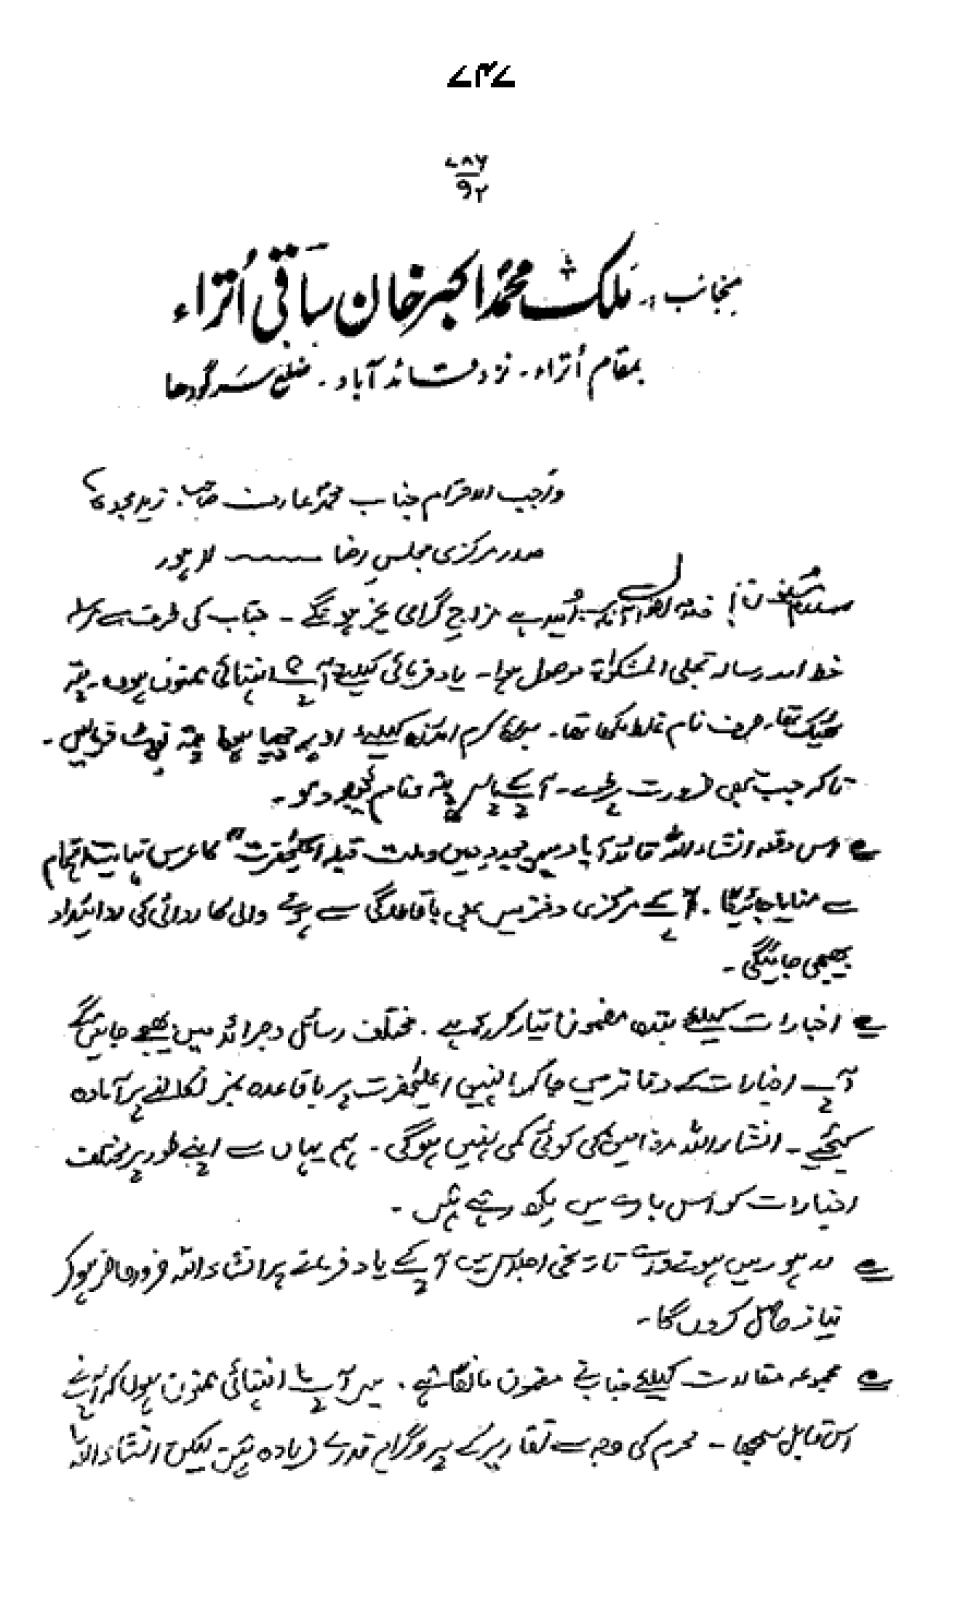 ۷۴۷
۷۸۶
۹۲
منجانب :۔ ملک محمد اکبر خان ساقی اُتراء
بمقام اُتراء ۔ نزد قائد آباد ۔ ضلع سرگودھا
واجب الاحترام جناب محمد عارف صاحب زید مجدہٗ
صدر مرکزی مجلس رضا ——— لاہور
سلام مسنون! اُمید ہے مزاجِ گرامی بخیر ہونگے ۔ جناب کی طرف سے مرسلہ
خط اور رسالہ تجلی المشکوٰۃ موصول ہوا ۔ یاد فرمائی کیلئے آپ کا انتہائی ممنون ہوں ۔ پتہ
ٹھیک تھا ۔ صرف نام غلط لکھا تھا ۔ براہ کرم آئندہ کیلئے اوپر چھپا ہوا پتہ نوٹ فرمالیں ۔
تاکہ جب بھی ضرورت پڑے ۔ آپکے پاس پتہ و نام موجود ہو ۔
؎ اس دفعہ انشاء اللہ قائد آباد میں مجدد دین و ملت قبلہ اعلیٰحضرتؒ کا عرس نہایت اہتمام
سے منایا جائیگا ۔ آپکے مرکزی دفتر میں بھی باقاعدگی سے ہونے والی کاروائی کی روائیداد
بھیجی جائیگی ۔
؎ اخبارات کیلئے بندہ مضمون تیار کر رہا ہے ۔ مختلف رسائل و جرائد میں بھیجے جائیں گے
آپ اخبارات کے دفاتر میں جا کر انہیں اعلیٰحضرت پر باقاعدہ نمبر نکالنے پر آمادہ
کیجئے ۔ انشاء اللہ مضامین کی کوئی کمی نہیں ہوگی ۔ ہم یہاں سے اپنے طور پر مختلف
اخبارات کو اس بارے میں لکھ رہے ہیں ۔
؎ لاہور میں ہونے والے تاریخی اجلاس میں آپکے یاد فرمانے پر انشاء اللہ ضرور حاضر ہو کر
نیاز حاصل کروں گا ۔
؎ مجموعہ مقالات کیلئے جناب نے مضمون مانگا ہے ۔ میں آپ کا انتہائی ممنون ہوں کہ آپنے
اس قابل سمجھا ۔ محرم کی وجہ سے تقاریر کے پروگرام قدرے زیادہ ہیں لیکن انشاء اللہ